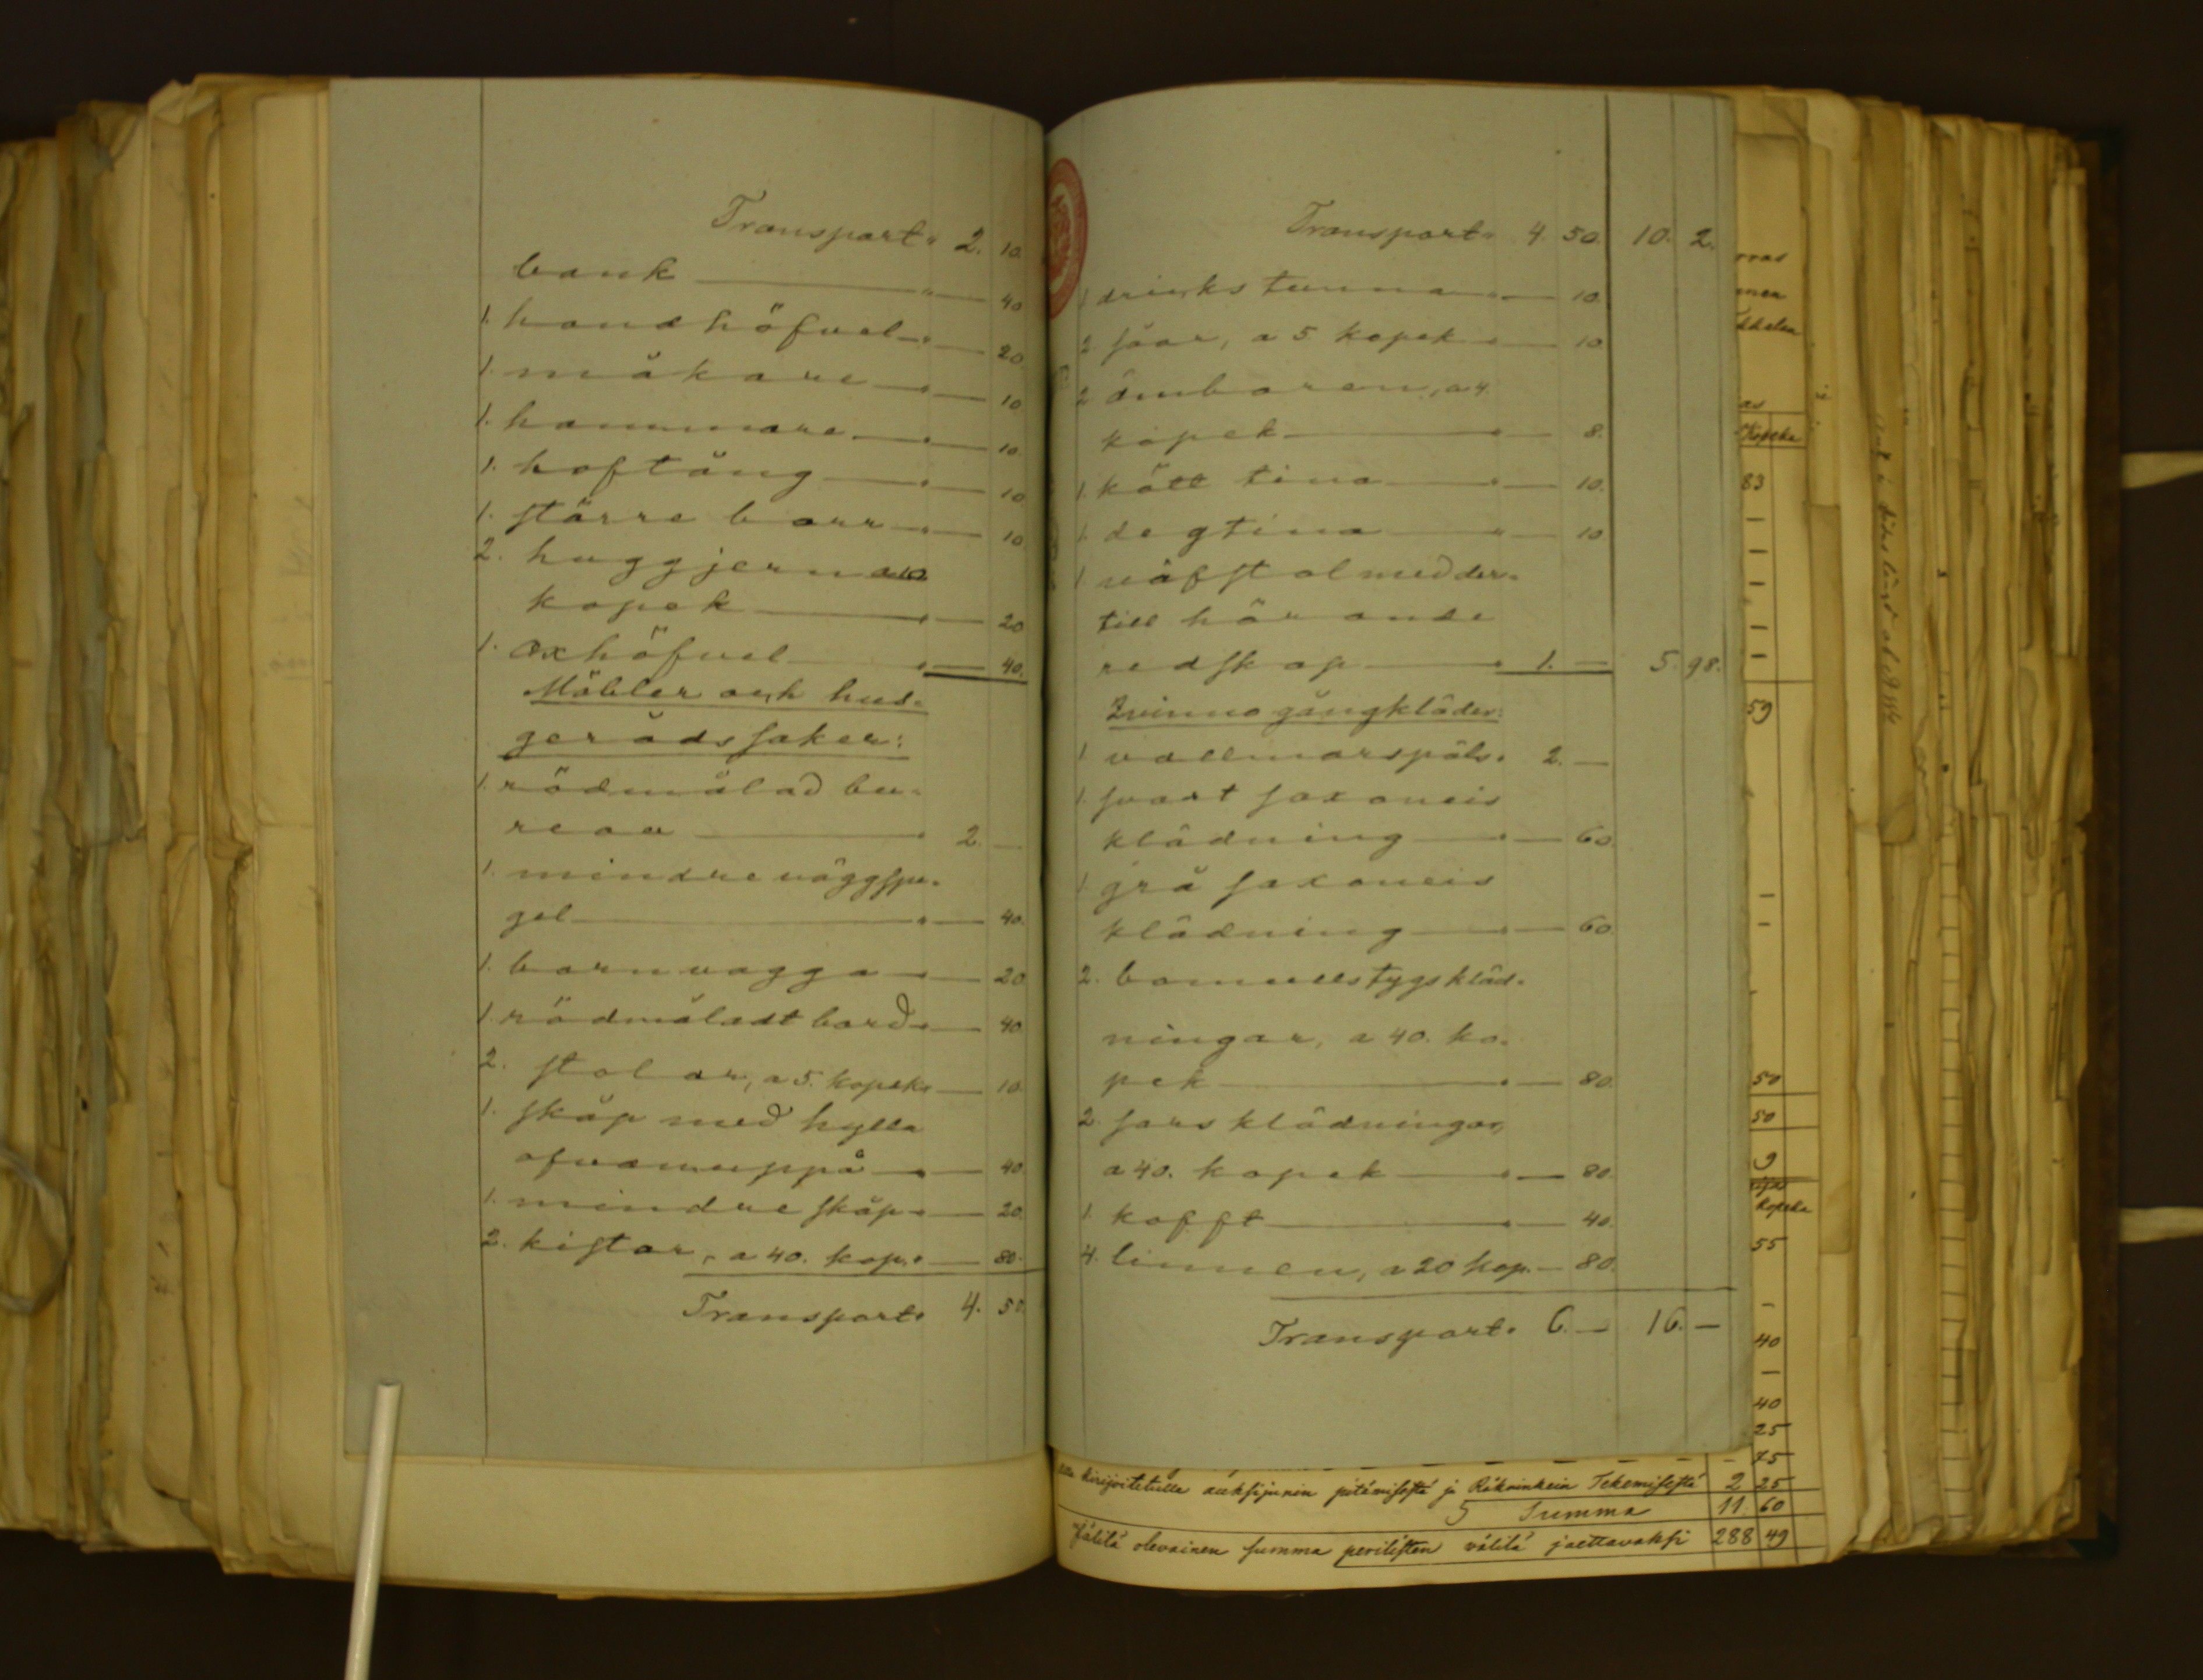 Transport " 2. 10.
bank " — 40
1. handhöfvel " — 20
1. måkare " — 10
1. hammare " — 10.
1. hoftång " — 10
1. större borr " — 10
2. huggjern a 10
kopek " — 20
1. oxhöfvel " — 40.
Möbler och hus-
gerådssaker:
1. rödmålad bu-
reau " 2. —
1. mindre väggspe-
gel " — 40.
1. barnvagga " — 20
1. rödmåladt bord " — 40
2. stolar, a 5. kopek " — 10
1. skåp med hylla
ofvanuppå " — 40
1. mindre skåp " — 20
2. kistor, a 40. kop. " — 80.
Transport " 4. 50.
Transport " 4. 50. 10. 2.
1 drickstunna " — 10.
2 såar, a 5 kopek " — 10
2 ämbaren, a 4.
kopek " — 8.
1. kött tina " — 10.
1. degtina " — 10
1 väfstol med der-
till hörande
redskap " 1. — 5. 98.
Qvinno gångkläder:
1 vallmarspäls " 2. —
1. svart saxoneis
klädning " — 60.
1 grå saxoneis
klädning " — 60.
2. bomullstygskläd-
ningar, a 40. ko-
pek " — 80.
2. sarsklädningar,
a 40. kopek " — 80.
1. kofft " — 40.
4. linnen, a 20 kop. — 80.
Transport " 6. — 16. —
Kopeka
83
59
50
50
9
Kopeka
55
40
40
25
75
kirjoitetulla auksijunin pitämisestä ja Räkninkein Tekemisestä 2 25
Summa 11. 60
Jälilä olevainen summa perilisten välilä jaettavaksi 288 49